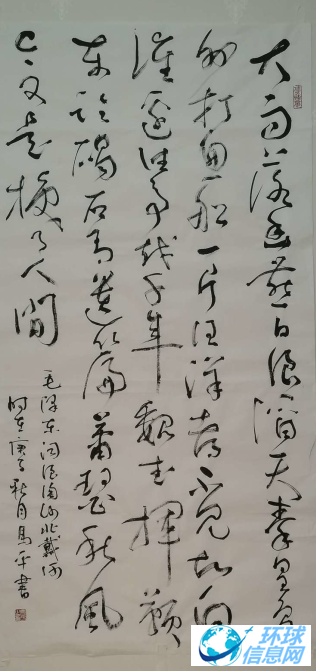 大雨落幽燕白浪滔天秦皇岛
外打鱼船一片汪洋都不见知向
谁边往事越千年魏武揮鞭
东临碣石有遗篇萧瑟秋风
今又是换了人間
毛泽东词浪淘沙北戴河
时在庚子秋月馬平書
环球
信息网